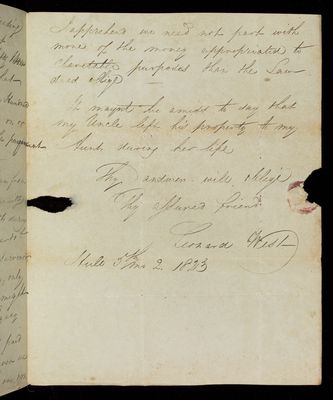 I apprehend we need not part with
more of the money appropriated to
charitable purposes than the Law
does oblige
It maynt be amiss to say that
my Uncle left his property to my
Aunt during her life
Thy answer will oblige
Thy assured friend
Leonard West
Hull 5th mo 2. 1823